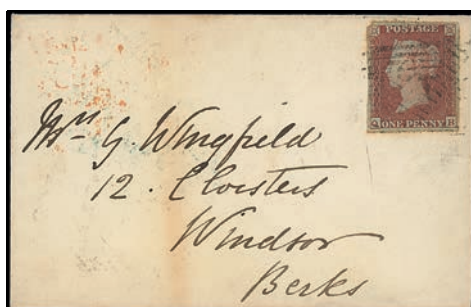 POSTAGE
ONE PENNY
Mrs G. Wingfield
12. Cloisters
Windsor
Berks